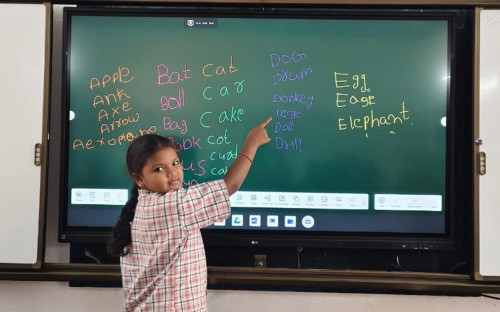 Apple
Ank
Axe
Arrow
Aeroplane
Bat
boll
Bag
Cat
Car
Cake
cot
curd
DOG
Drum
Donkey
Desk
Doll
Drill
Egg
Eage
Elephant.